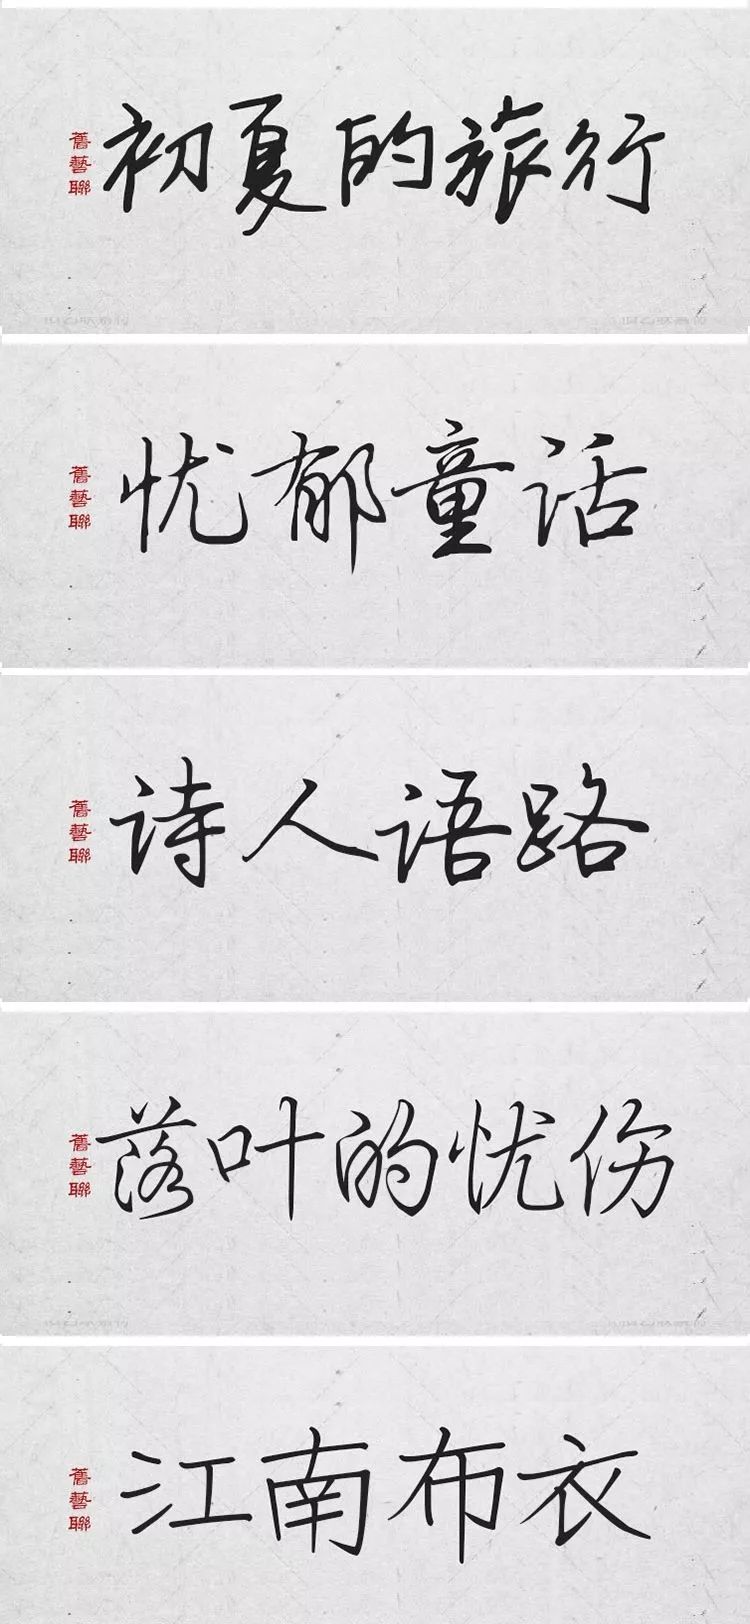 舊藝聯
初夏的旅行
舊藝聯
忧郁童话
舊藝聯
诗人语路
舊藝聯
落叶的忧伤
舊藝聯
江南布衣